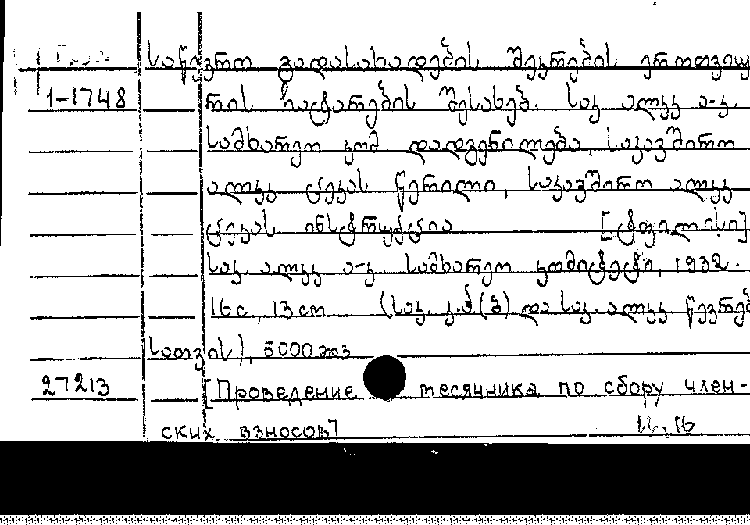 საწევრო გადასახადების შეკრების ერთთვიუ
1-1748 რის ჩატარების შესახებ. საქ. ალკკ ა-კ.
სამხარეო კომ დადგენილება, საკავშირო
ალკკ ცეკას წერილი, საკავშირო ალკკ
ცეკას ინსტრუქცია [ტფილისი]
საქ. ალკკ ა-კ. სამხარეო კომიტეტი, 1932.
16 c., 13 cm (საქ. კ.პ(ბ) და საქ. ალკკ წევრებ
სათვის), 5000 экз
27213 [Проведение месячника по сбору член-
ских взносов] 16.16